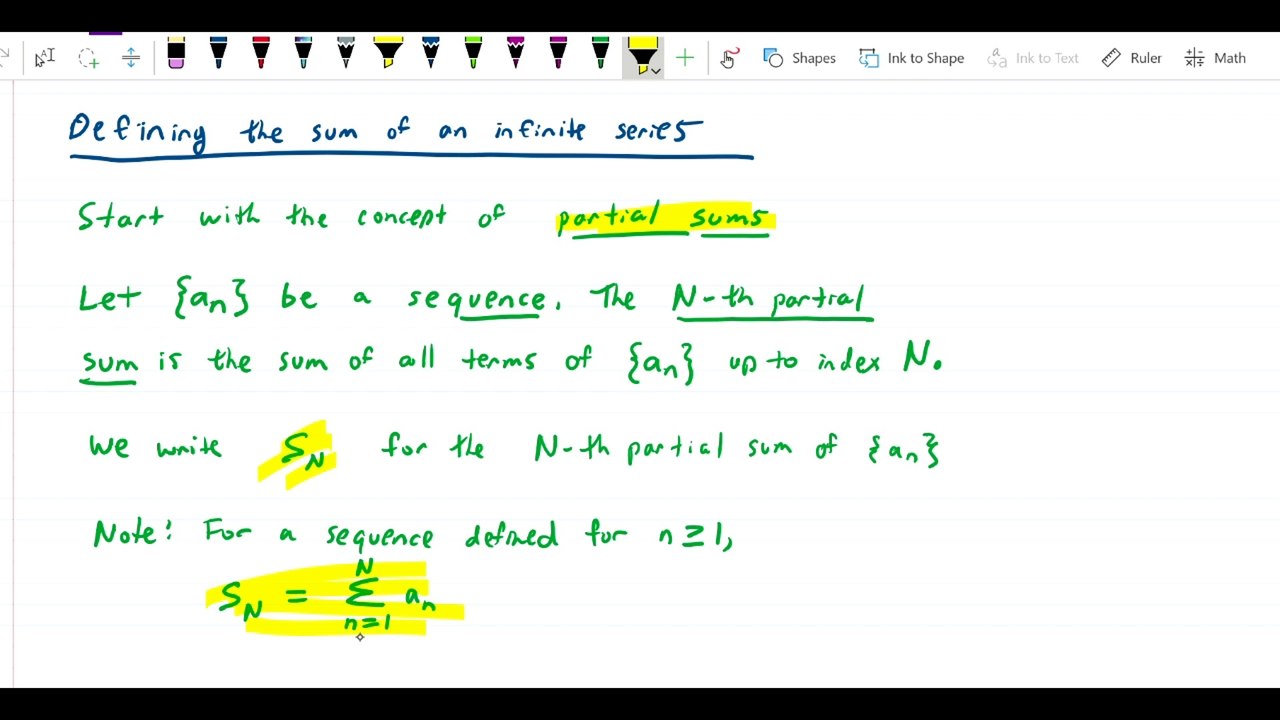 Shapes Ink to Shape Ink to Text Ruler Math
Defining the sum of an infinite series
Start with the concept of partial sums
Let {aₙ} be a sequence. The N-th partial
sum is the sum of all terms of {aₙ} up to index N.
We write S_N for the N-th partial sum of {aₙ}
Note: For a sequence defined for n ≥ 1,
S_N = ∑_{n=1}^{N} aₙ